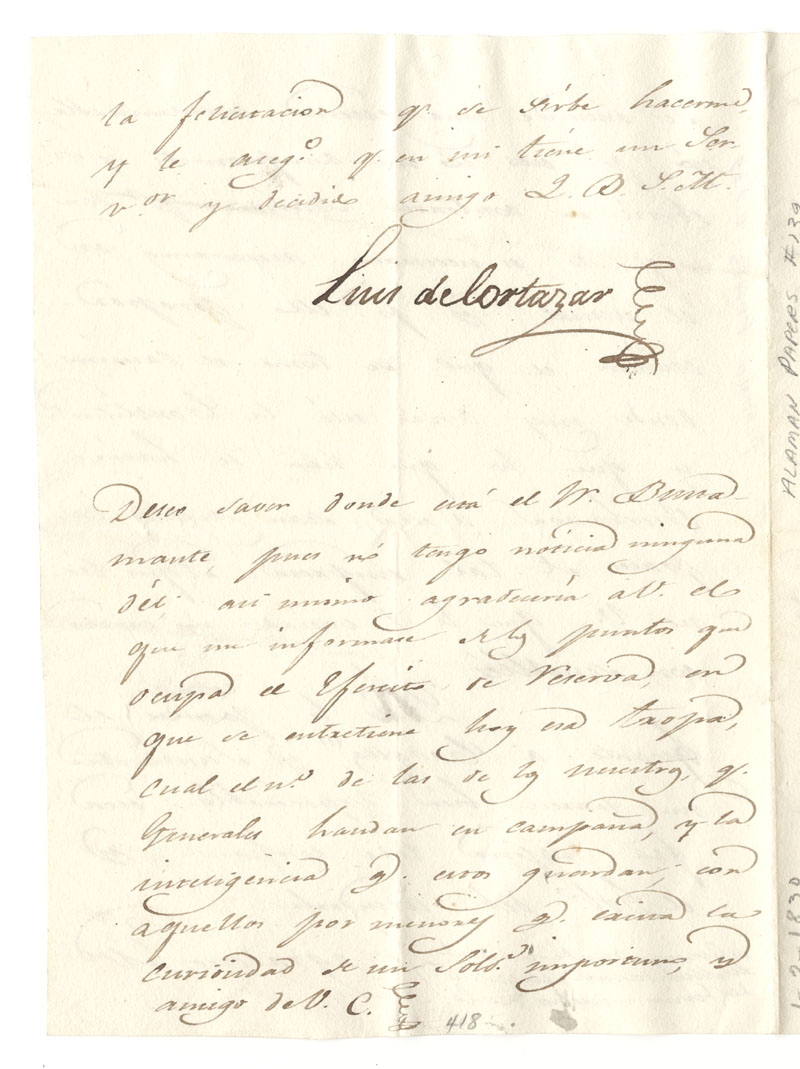 la felicitacion q.e se sirbe hacerme,
y le aseg.o q. en mi tiene un Ser
v.or y decidido amigo Q. B. S. M.
Luis de Cortazar
Deseo saver donde está el Sr. Busta-
mante, pues no tengo noticia ninguna
dél; asi mismo agradeceria a V. el
que me informase de los puntos que
ocupa el Ejercito de Reserva, en
que se entretiene hoy esa tropa,
cual el n.o de las de los nuestros, q.
Generales handan en campaña, y la
inteligencia q. esos guardan, con
aquellos por menores q. exciva la
curiosidad de un Sold.o importuno, y
amigo de V. C.
418
ALAMAN PAPERS #139
1-2-1830